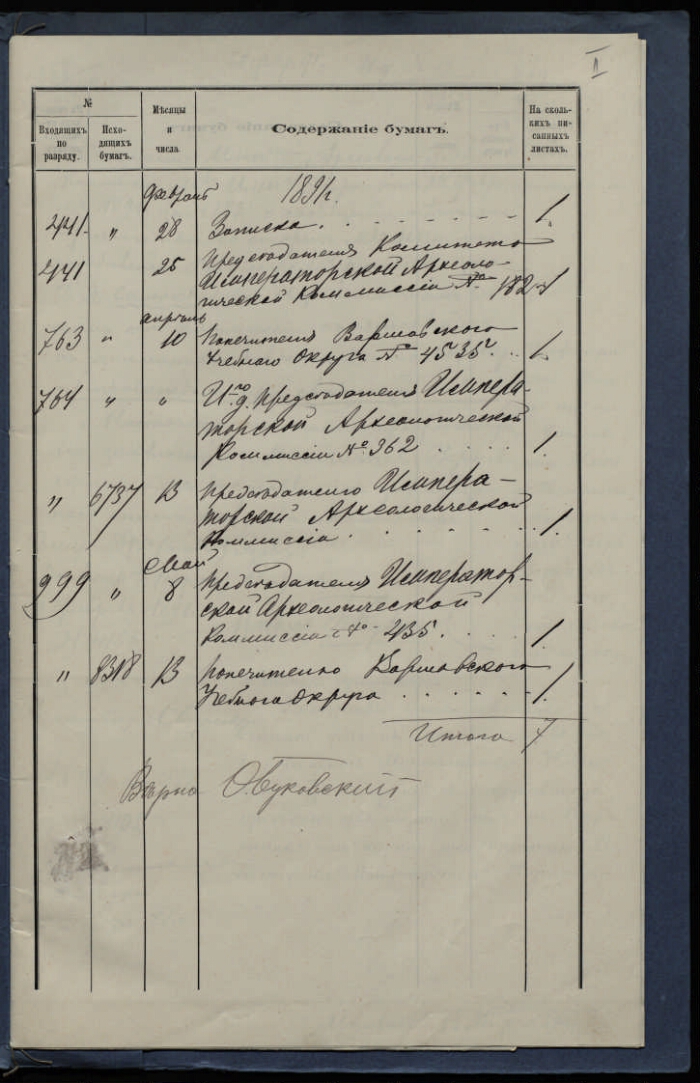 I
№
Входящихъ по разряду.
Исхо-дящихъ бумагъ.
Мѣсяцы и числа
Содержаніе бумагъ.
На сколь-кихъ пи-санныхъ листахъ.
Февраль 1891 г.
441. „ 28 Записка. 1.
441 25 Предсѣдателя Комитета
Императорской Археоло-
гической Коммиссіи № 182 1
апрѣль
763 „ 10 Попечителя Варшавскаго
Учебнаго Округа № 4535. 1.
764 „ „ И. д. предсѣдателя Импера-
торской Археологической
Коммиссіи № 362 1.
„ 6737 13 Предсѣдателю Импера-
торской Археологической
Коммиссіи. 1.
Май
999 „ 8 Предсѣдателя Император-
ской Археологической
Коммиссіи № 435. 1.
„ 8318 13 Попечителю Варшавскаго
Учебнаго Округа 1.
Итого 7
Вѣрно Обуховскій